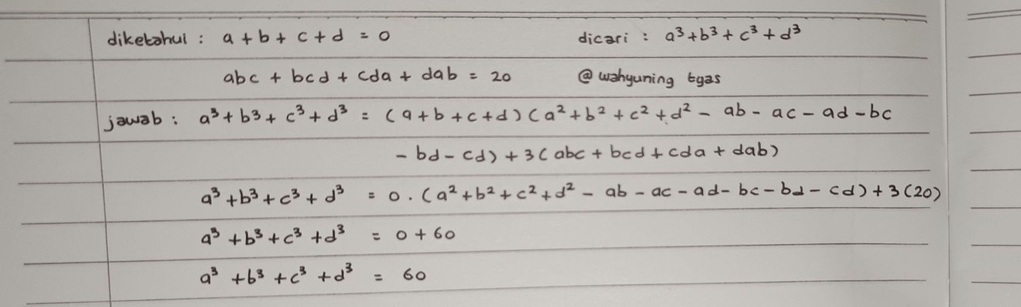 diketahui : a + b + c + d = 0 dicari : a³ + b³ + c³ + d³
abc + bcd + cda + dab = 20 @ wahyuning tyas
jawab : a³ + b³ + c³ + d³ = (a + b + c + d) (a² + b² + c² + d² - ab - ac - ad - bc
- bd - cd) + 3 (abc + bcd + cda + dab)
a³ + b³ + c³ + d³ = 0 . (a² + b² + c² + d² - ab - ac - ad - bc - bd - cd) + 3 (20)
a³ + b³ + c³ + d³ = 0 + 60
a³ + b³ + c³ + d³ = 60